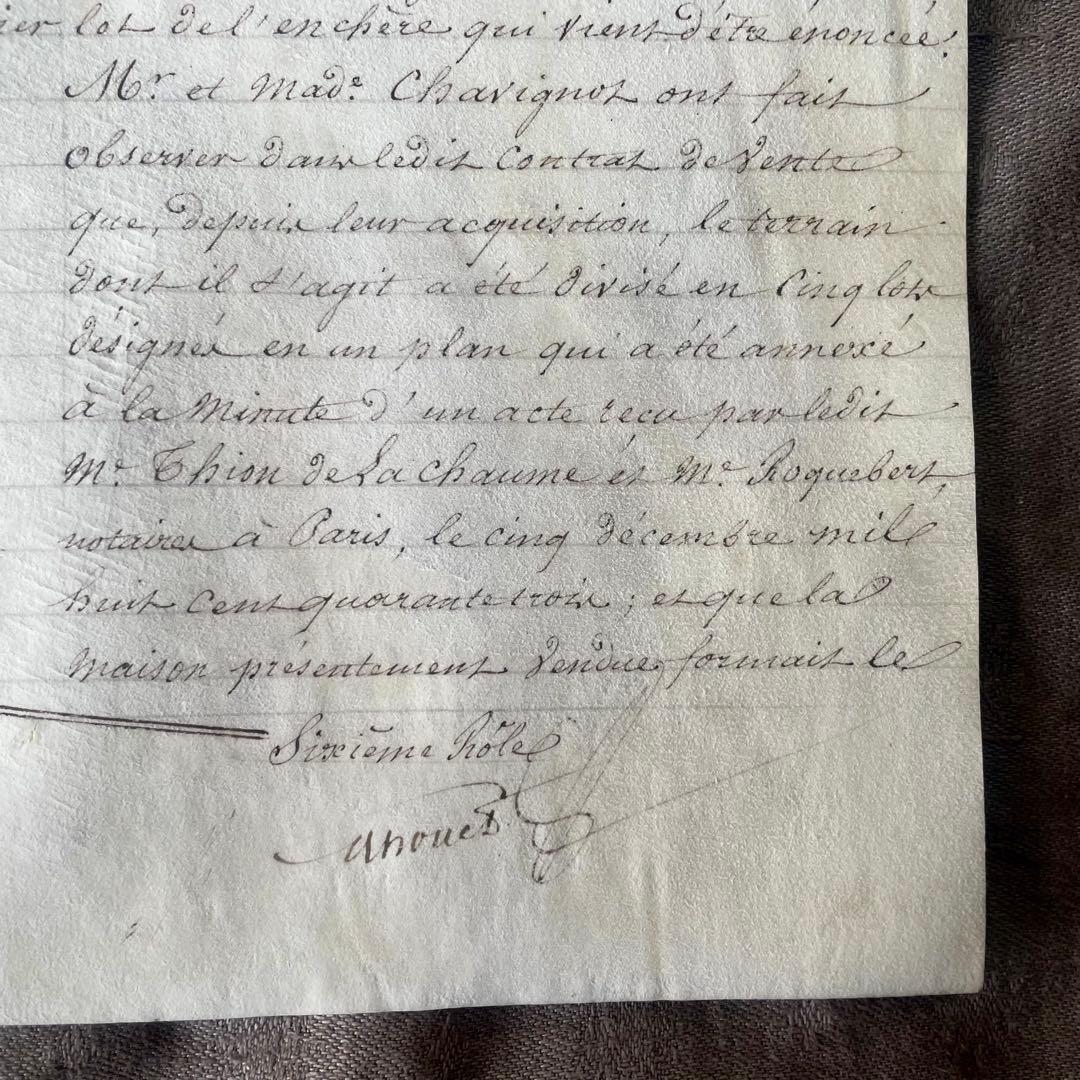 ier lot de l'enchère qui vient d'être énoncée.
Mr. et Made. Chavignot ont fait
observer dans ledit contrat de vente
que, depuis leur acquisition, le terrain
dont il s'agit a été divisé en cinq lots
désignés en un plan qui a été annexé
à la minute d'un acte reçu par ledit
Me. Thion de La Chaume et Me. Roquebert,
notaires à Paris, le cinq décembre mil
huit cent quarante trois ; et que la
maison présentement vendue, formait le
Sixième Rôle